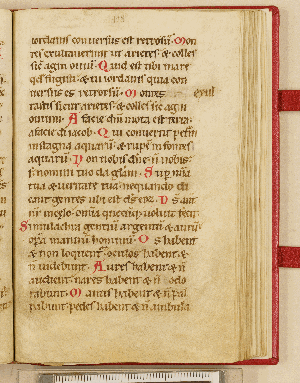 iordanis conversus est retrorsū. Mon
tes exultaverunt ut arietes. & colles
sic agni oviū. Quid est tibi mare
qđ fugisti. & tu iordanis quia con
versus es retrorsū. Montes exul
tastis sicut arietes. & colles sic agni
ovium. A facie dni mota est terra.
afacie di iacob. Qui convertit petrā
in stagna aquarū. & rupē in fontes
aquarū. Non nobis dne n̄ nobis.
s; nomini tuo da glam. Sup mīa
tua & veritate tua. nequando di
cant gentes ubi est ds eor. Ds aut
nr in celo. omia quecūq; voluit fecit.
Simulachra gentiū argentū & aurū.
opa manuū hominū. Os habent
& non loquent. oculos habent &
n̄ videbunt. Aures habent & n̄
audient. nares habent & n̄ odo
rabunt. Manus habent & n̄ pal
pabunt. pedes habent & n̄ ambula